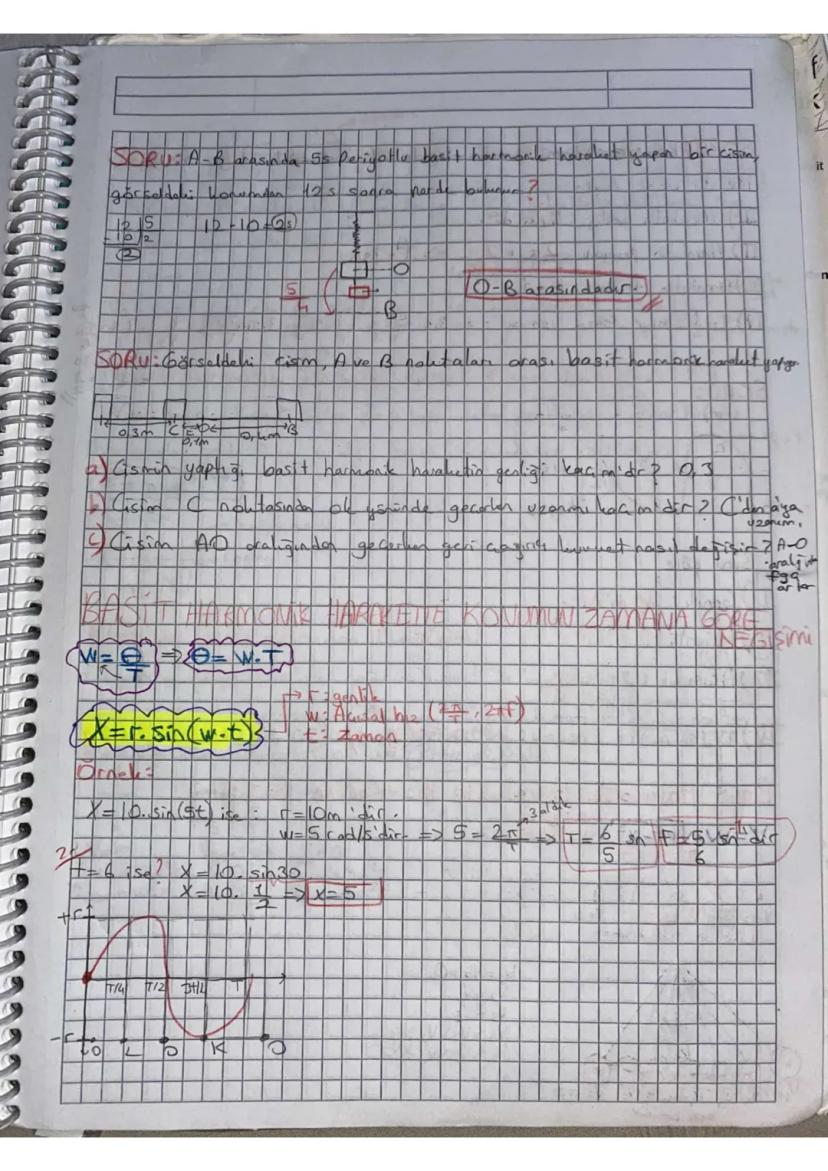 SORU: A-B arasında 5s Periyotlu basit harmonik haraket yapan bir cisim,
görseldeki konumdan 12s sonra nerde bulunur?
12 | 5
-10 | 2
2
12-10=2s
O
5/4
B
O-B arasındadır.
SORU: Görseldeki cisim, A ve B noktaları arası basit harmonik haraket yapıyor.
0,3m C E O 0,4m B
0,1m
a) Cismin yaptığı basit harmonik haraketin genliği kaç m'dir? 0,3
b) Cisim C noktasından ok yönünde geçerken uzanımı kaç m'dir? C'den a'ya
uzanım,
c) Cisim AO aralığından geçerken geri çağırıcı kuvvet nasıl değişir? A-O
aralığın
artar
BASİT HARMONİK HARAKETTE KONUMUN ZAMANA GÖRE
DEĞİŞİMİ
W = θ/T => θ = W.T
r: genlik
w: Açısal hız (2π/T, 2πf)
t: Zaman
X=r.sin(w.t)
Örnek:
X=10.sin(5t) ise: r=10m'dir.
3 aldık
w=5 rad/s'dir. => 5 = 2π/T => T = 6/5 sn F = 5/6 sn⁻¹'dir
t=6 ise? X=10.sin30
X=10. 1/2 => x=5
+r
T/4 T/2 3T/4 T
-r O L O K O